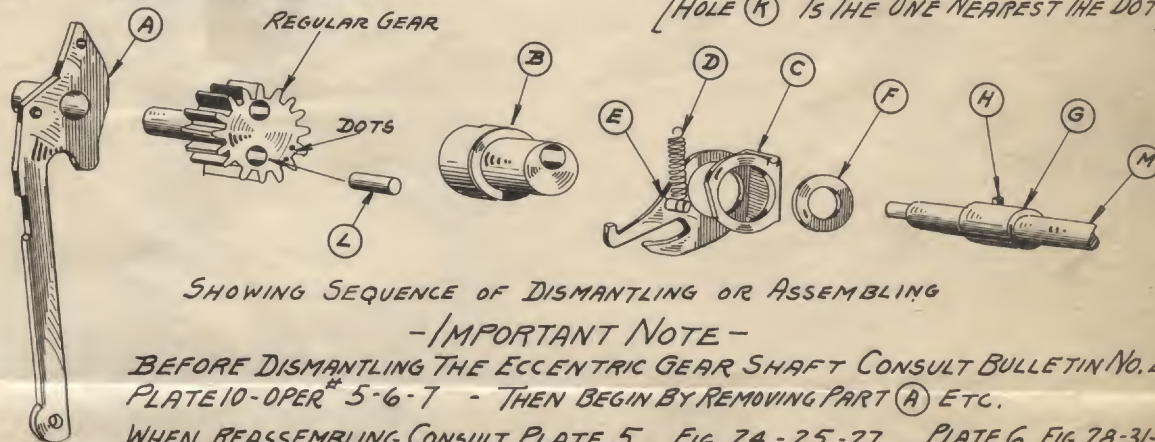 [HOLE (K) IS THE ONE NEAREST THE DOT
A
REGULAR GEAR
B
D
C
E
F
H
G
M
DOTS
L
SHOWING SEQUENCE OF DISMANTLING OR ASSEMBLING
-IMPORTANT NOTE-
BEFORE DISMANTLING THE ECCENTRIC GEAR SHAFT CONSULT BULLETIN NO.
PLATE 10-OPER# 5-6-7 - THEN BEGIN BY REMOVING PART (A) ETC.
WHEN REASSEMBLING CONSULT PLATE 5 FIG. 24-25-27 PLATE 6 FIG. 28-31-